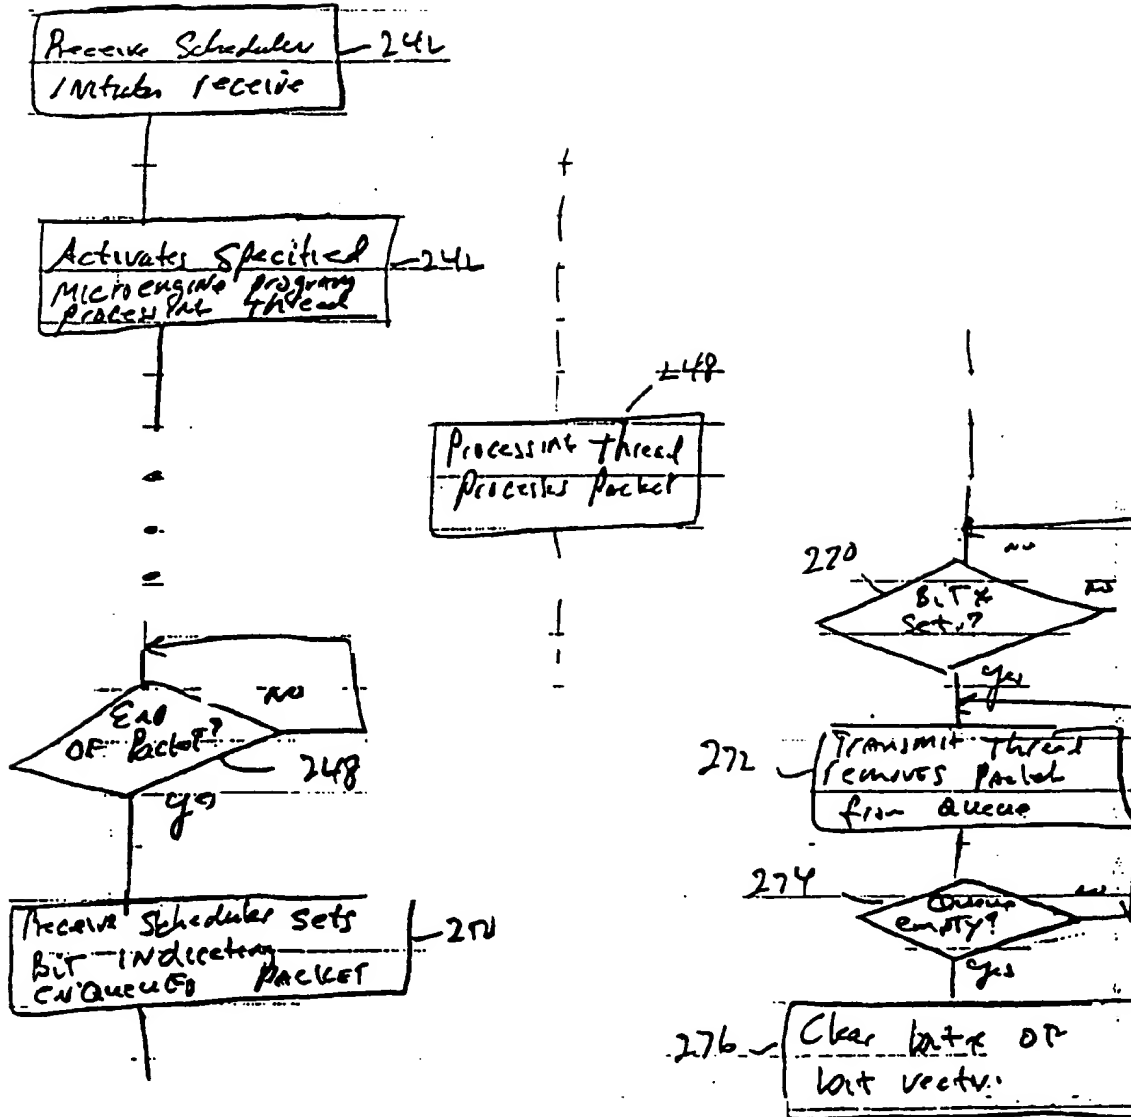 Receive Scheduler
Initiates receive
242
Activates Specified
Microengine program
processing thread
242
End
OF Packet?
NO
248
yes
Receive Scheduler sets
Bit indicating
ENQUEUED PACKET
250
248
Processing thread
Processes Packet
NO
270
BIT x
Set?
NO
yes
272
Transmit thread
removes Packet
from Queue
274
Queue
empty?
no
yes
276
Clear bit x OF
bit vector